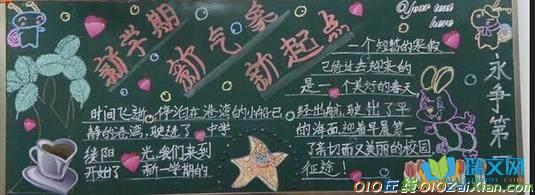 新学期
新气象
新起点
Your text
here
一个短暂的寒假
已经过去迎来的
是一个美好的春天
永争第
时间飞逝,停泊在港湾的小船已经出航,驶出了平
静的港湾,驶进了 中学的海面,迎着早晨第一
缕阳光,我们来到了亲切而又美丽的校园
开始了新一学期的征途!
瑞文网
010在线010ZaiXian.com